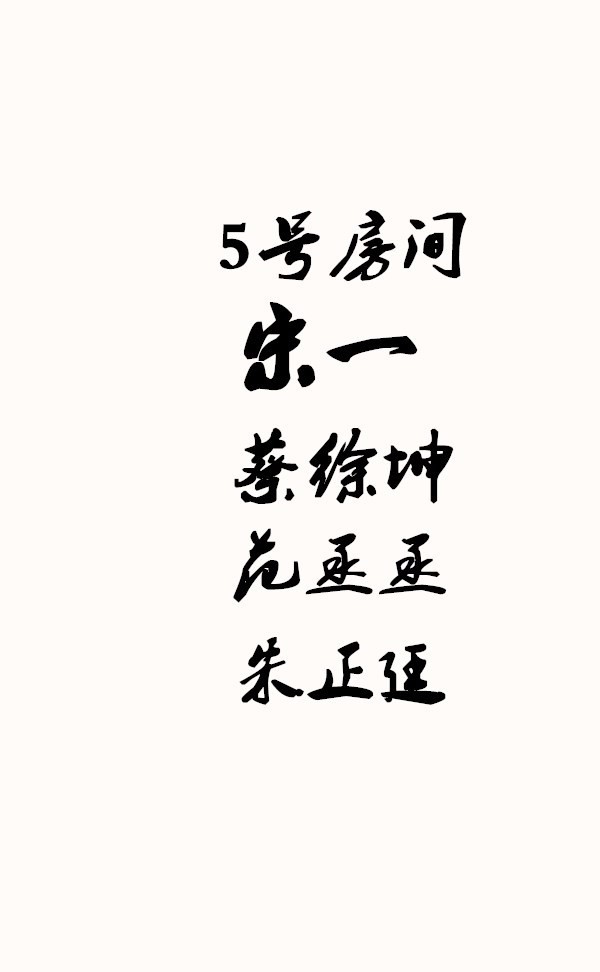 5号房间
宋一
蔡徐坤
范丞丞
朱正廷